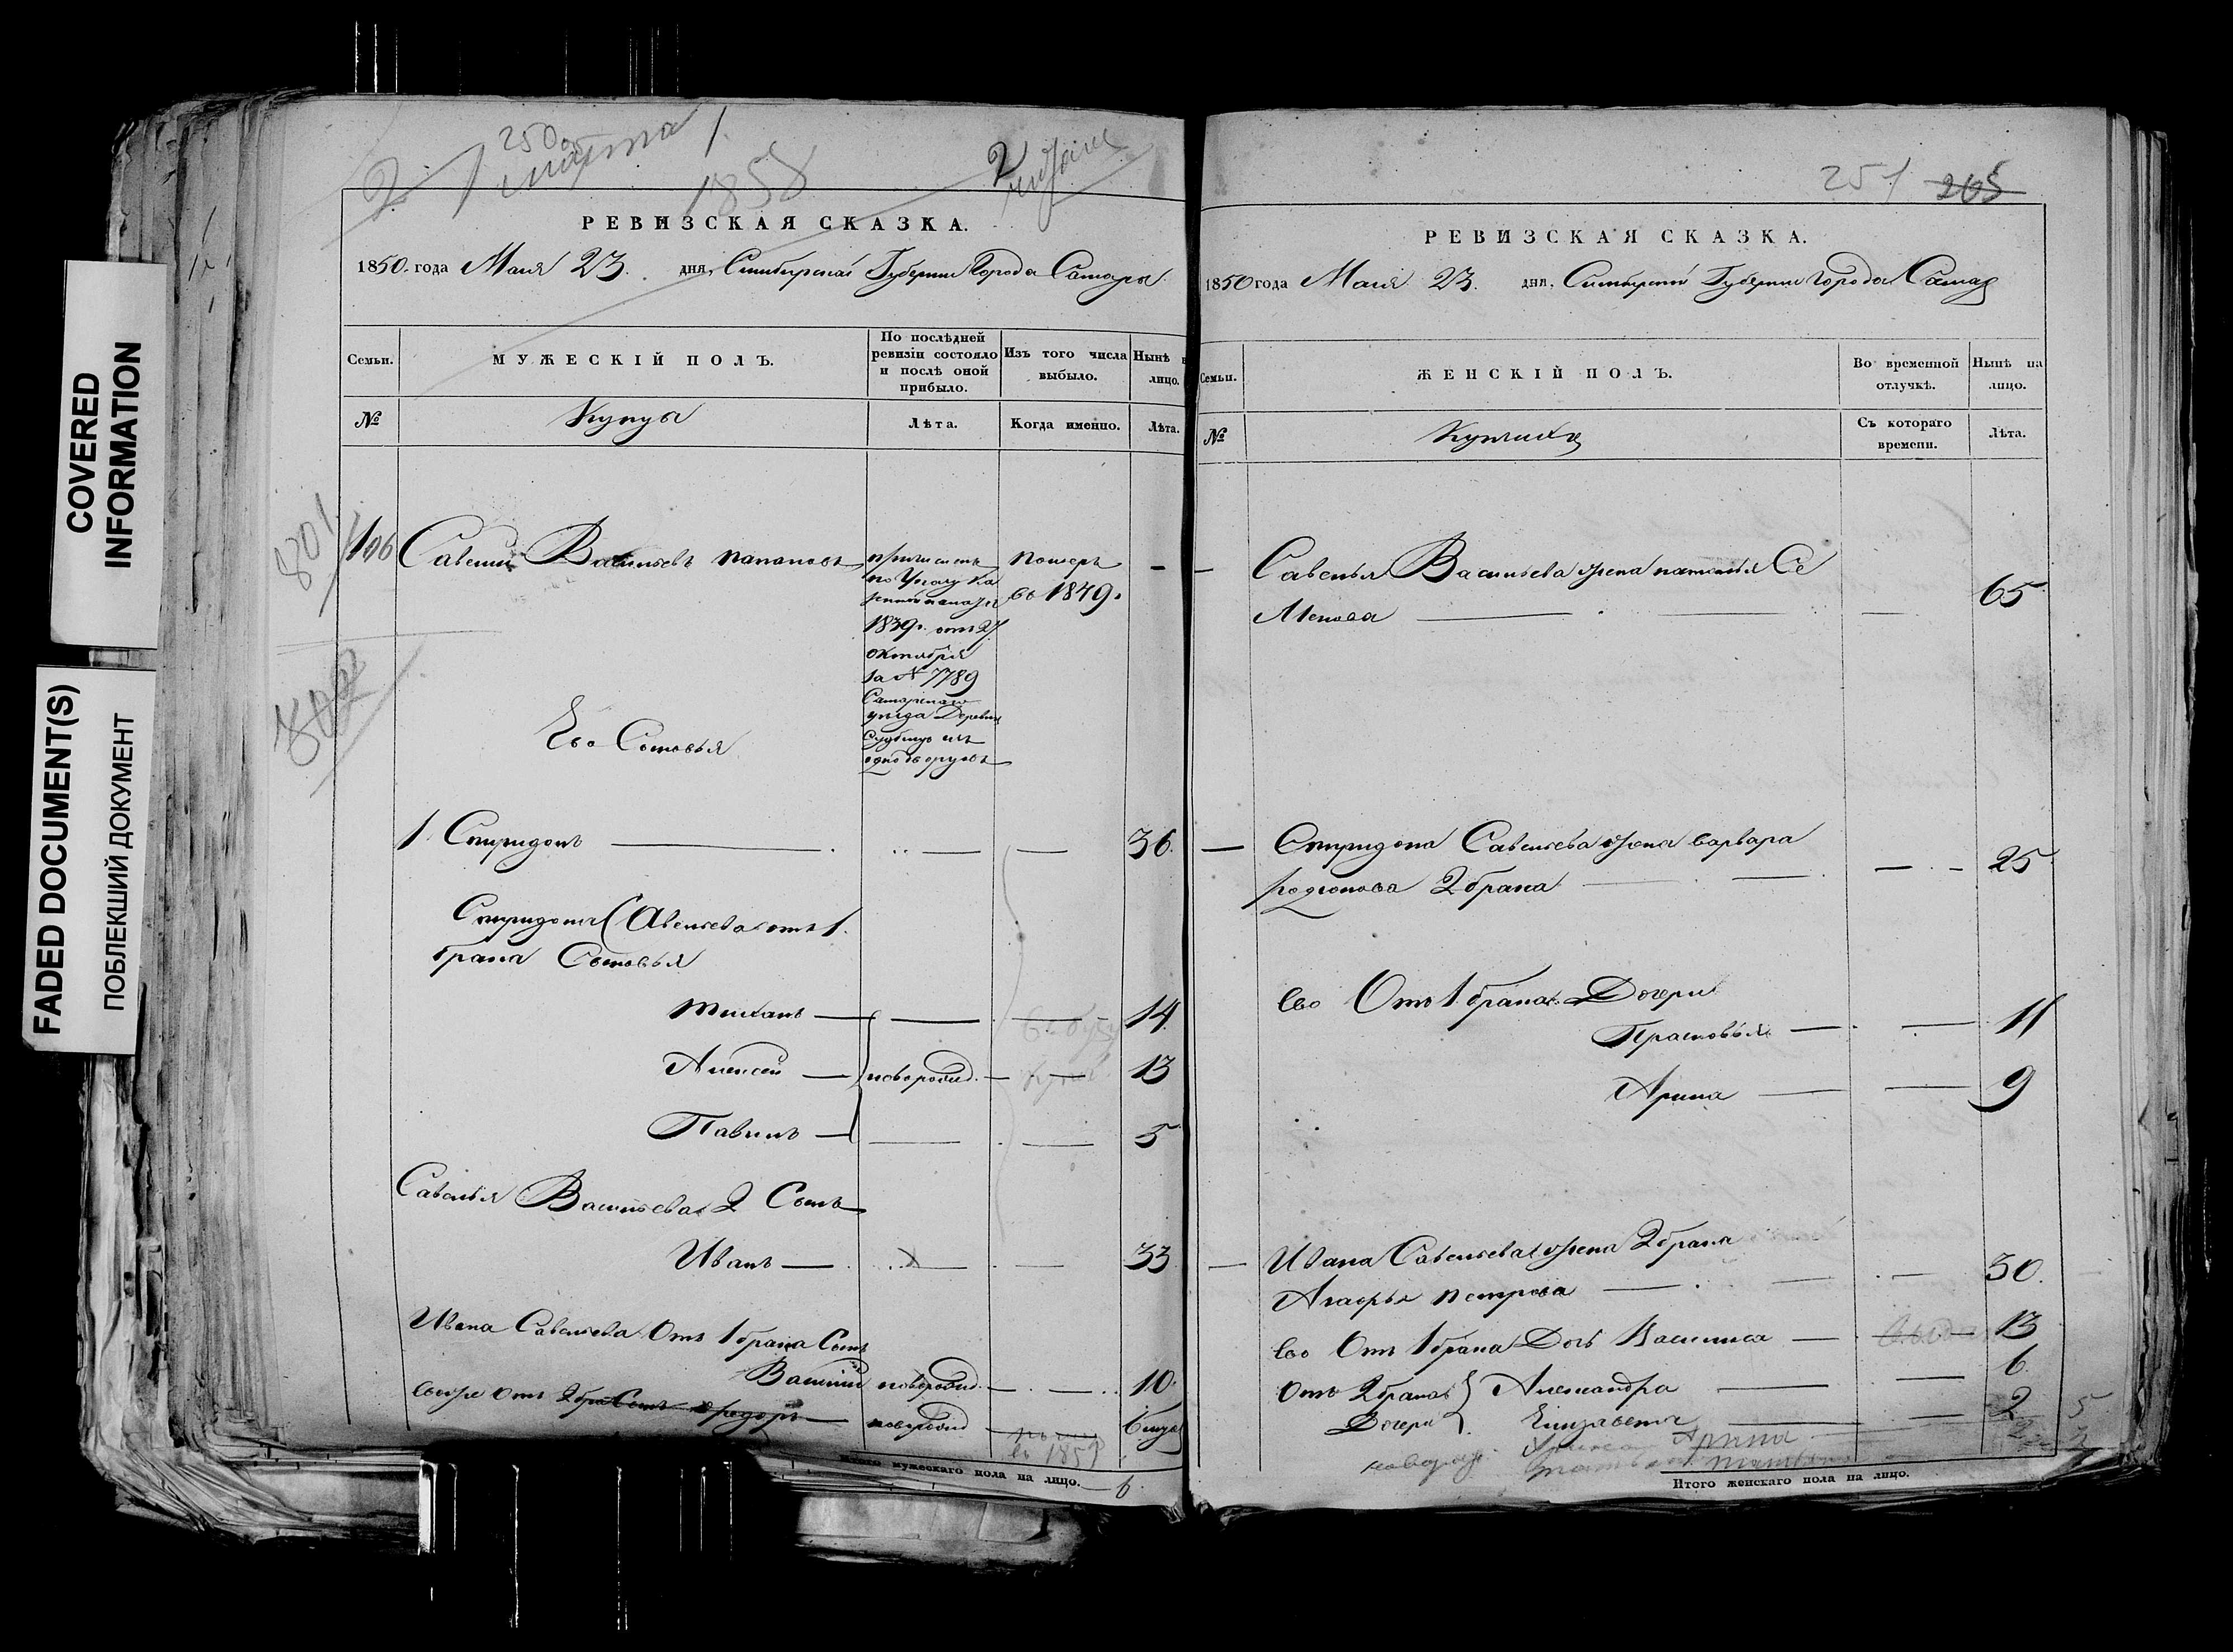 COVERED
INFORMATION
FADED DOCUMENT(S)
ПОБЛЕКШИЙ ДОКУМЕНТ
250
2 1 марта 1858
2
РЕВИЗСКАЯ СКАЗКА.
1850. года Мая 23. дня, Симбирской Губернии Города Самары
Семьи.
МУЖЕСКІЙ ПОЛЪ.
По послѣдней ревизіи состояло и послѣ оной прибыло.
Изъ того числа выбыло.
Нынѣ лицо.
№
Купцы
Лѣта.
Когда именно.
Лѣта.
801
106 Савелий Васильевъ
причисленъ
по Указу Ка
зенной палаты
1839г. отъ 27
октября
за № 7789
Самарскаго
уезда Деревни
изъ
однодворцевъ
померъ
въ 1849г.
802
Его Сыновья
1 Спиридонъ 36.
Спиридона Савельева отъ 1.
брака Сыновья
14
Алексей новорожд. 13
Павилъ 5
Савелья Васильева 2 Сынъ
Иванъ 33
Ивана Савельева Отъ 1 брака Сынъ
Василий новорожд. 10.
отъ 2 бра Сынъ Федоръ новорожд
въ 1859
Итого мужескаго пола на лицо. 6
251 265
РЕВИЗСКАЯ СКАЗКА.
1850 года Мая 23. дня, Симбирской Губернии Города Самар
Семьи.
ЖЕНСКІЙ ПОЛЪ.
Во временной отлучкѣ.
Нынѣ на лицо.
№
Съ котораго времени.
Лѣта.
Савелья Васильева жена наталья Се
менова 65
Спиридона Савельева жена варвара
родионова 2 брака 25
Ево Отъ 1. брака Дочери
Прасковья 11
Арина 9
Ивана Савельева жена 2 брака
петрова 30.
Ево Отъ 1 брака Дочь Василиса 13
Отъ 2 брака Александра 6.
Дочери Елизавета 2 5
новорож. Арина
Итого женскаго пола на лицо.